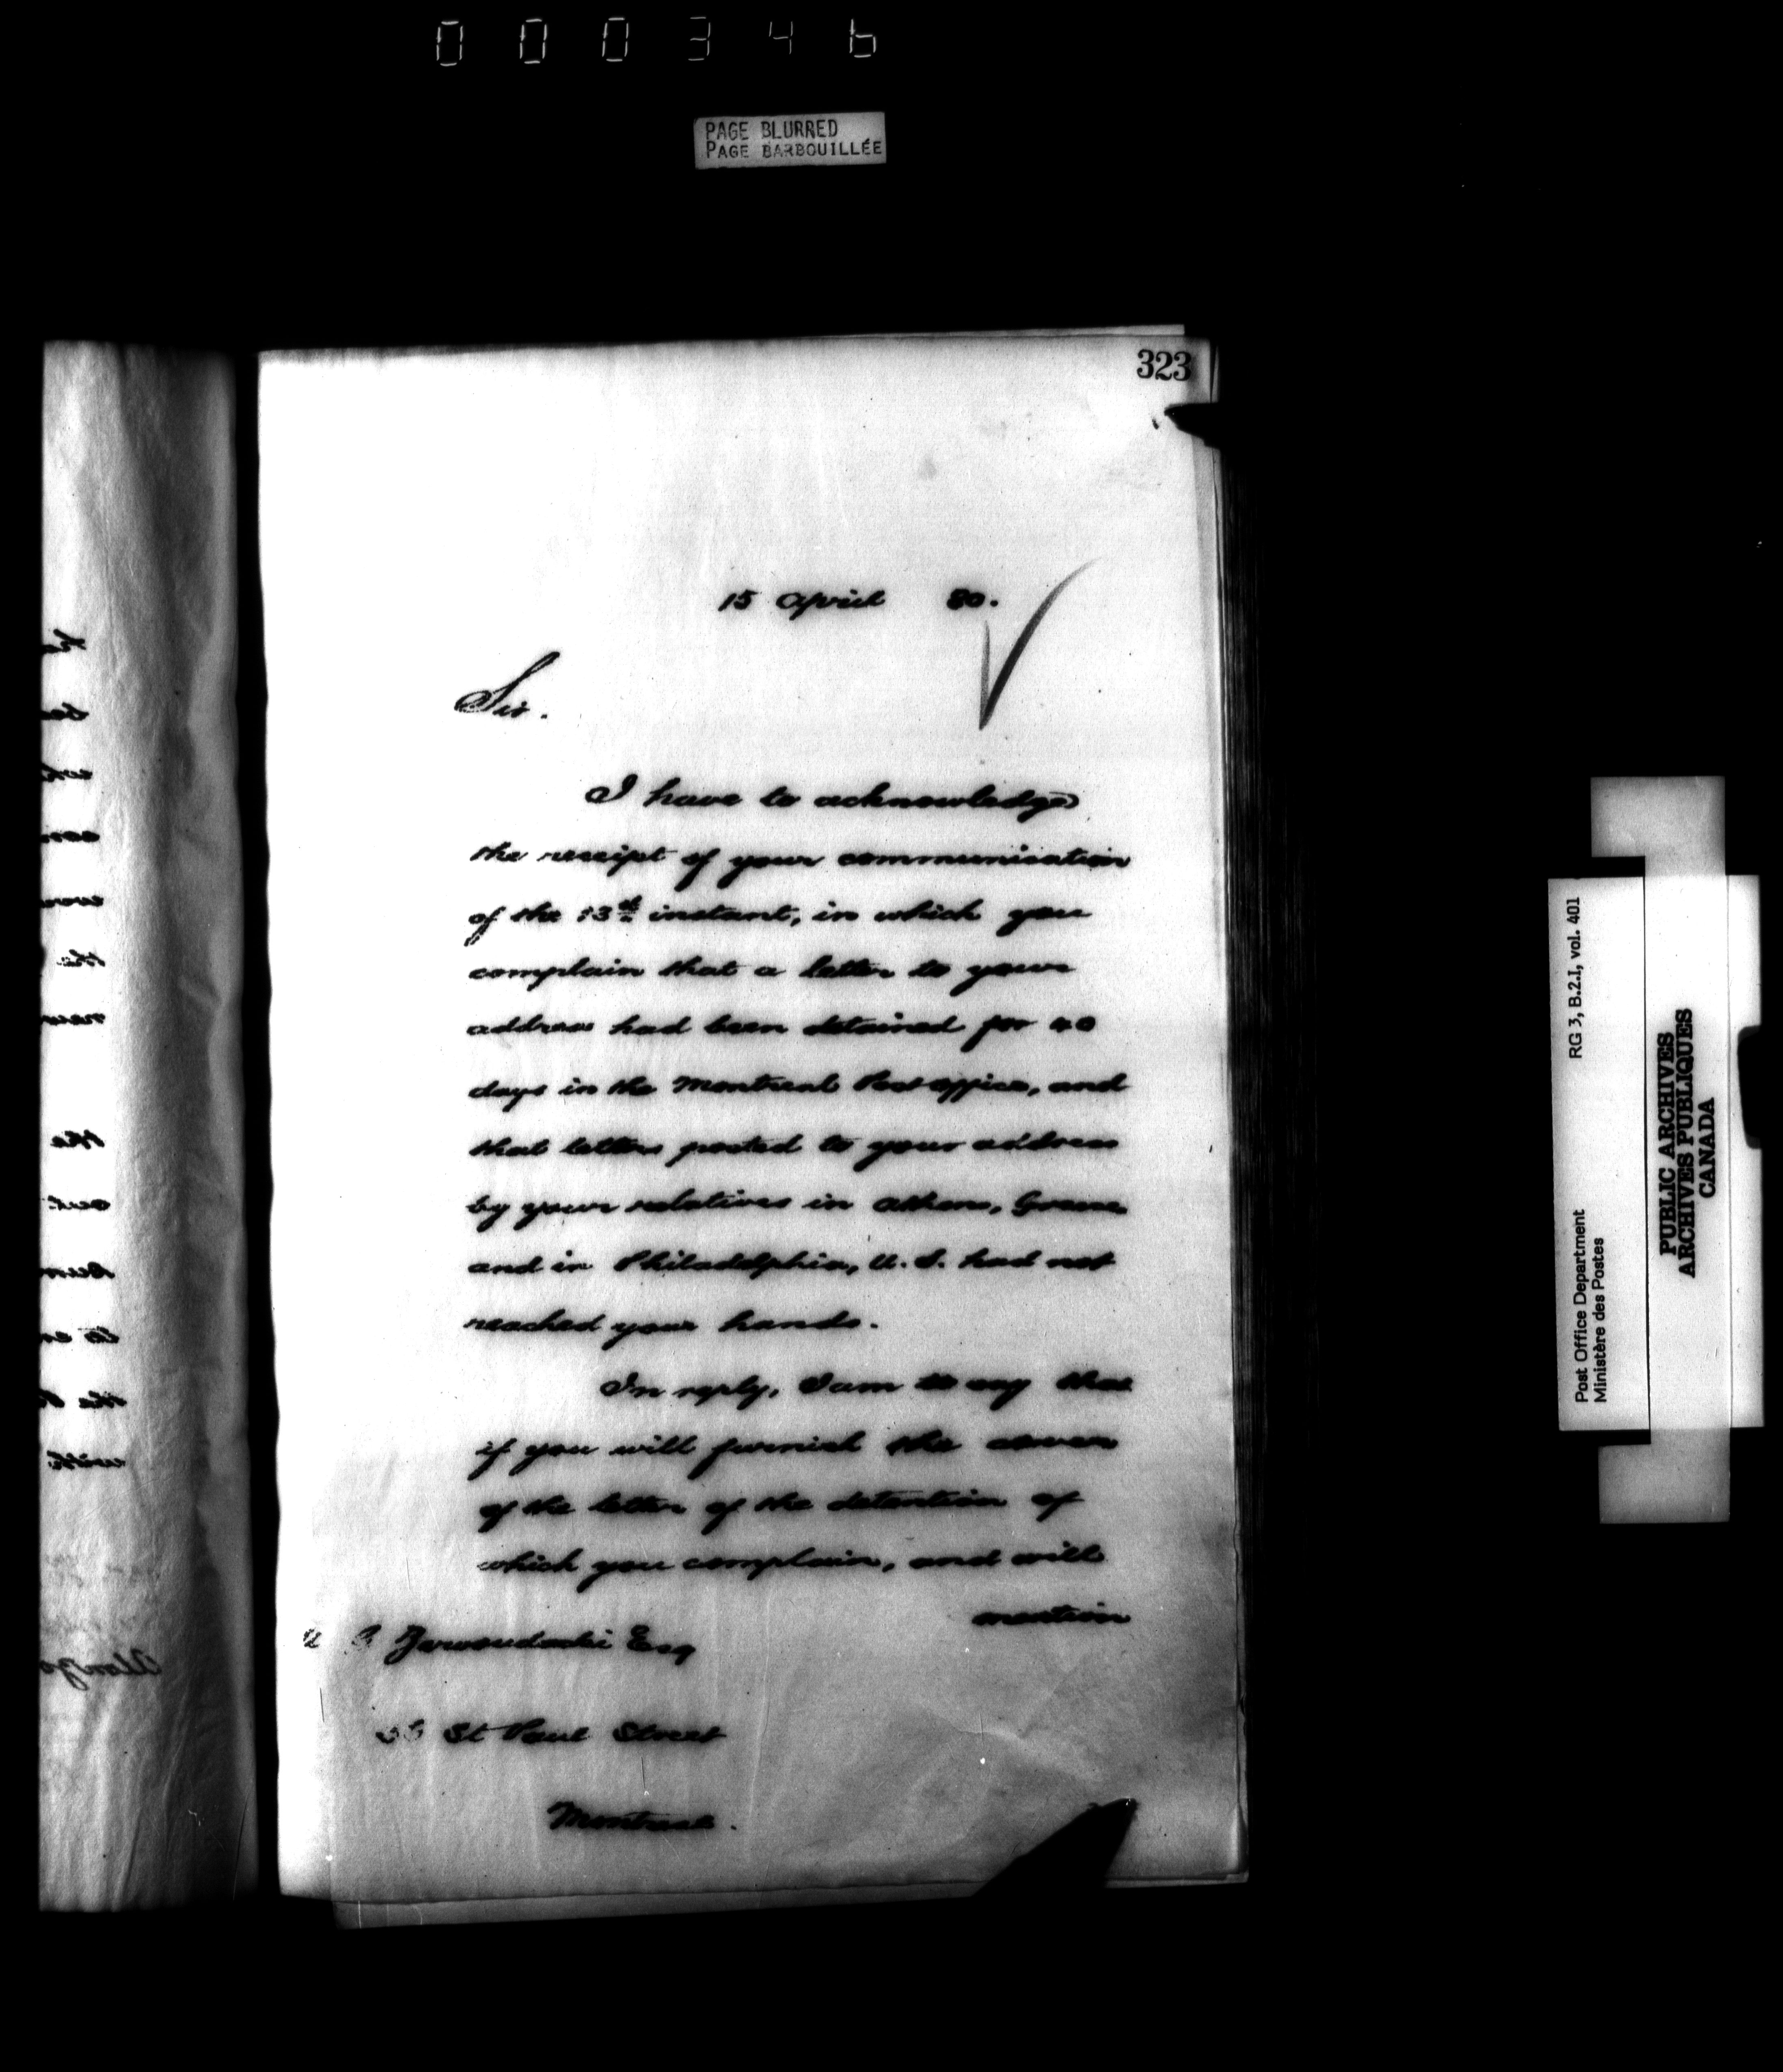 000346
PAGE BLURRED
PAGE BARBOUILLÉE
323
15 April 80.
Sir.
I have to acknowledge
the receipt of your communication
of the 13th instant, in which you
complain that a letter to your
address had been detained for 40
days in the Montreal Post office, and
that letters posted to your address
by your relatives in Athens, Greece
and in Philadelphia, U. S. had not
reached your hands.
In reply, I am to say that
if you will furnish the cover
of the letter of the detention of
which you complain, and will
mention
Esq
St Paul Street
Montreal.
RG 3, B.2.I, vol. 401
Post Office Department
Ministère des Postes
PUBLIC ARCHIVES
ARCHIVES PUBLIQUES
CANADA